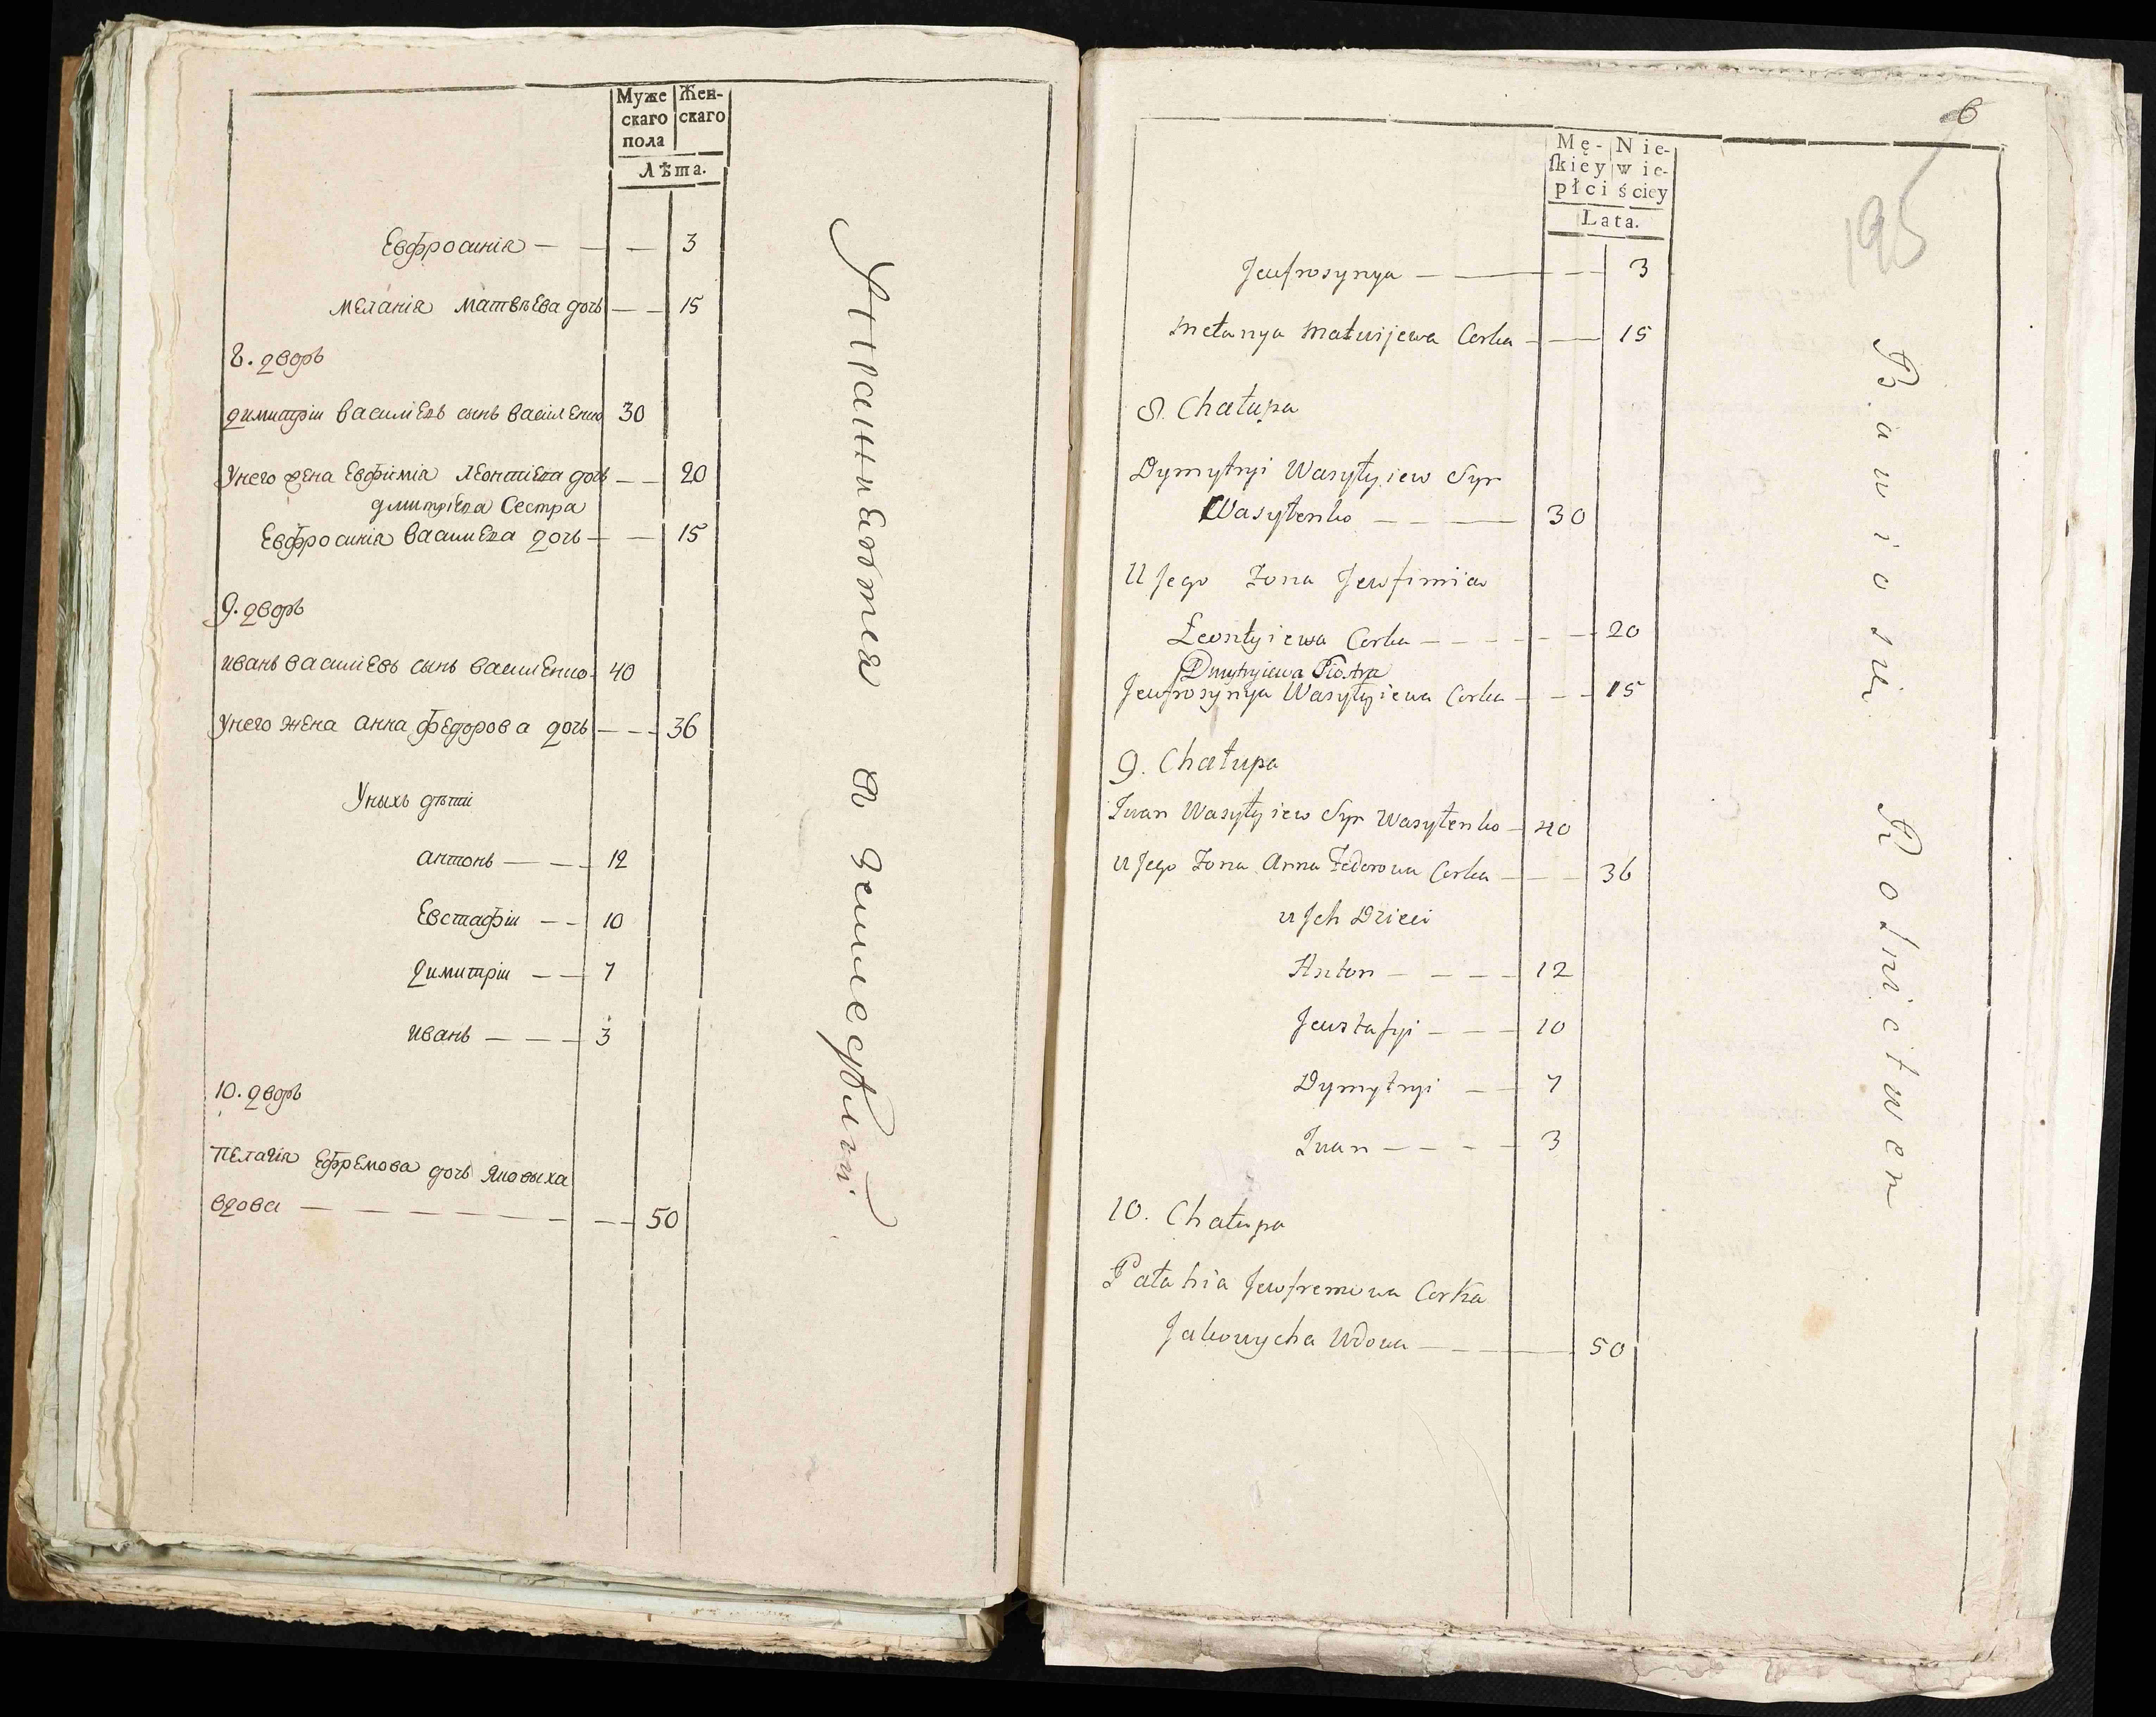 Муже
скаго
пола
Жен-
скаго
Лѣта.
Евфросинія — — — 3
Меланія Матвѣева дочь — — 15
8. дворъ
Димитрій Василіевъ сынъ Василенко 30
У него жена Евфимія Леонтіева дочь — — 20
Дмитріева Сестра
Евфросинія Василіева дочь — — 15
9. дворъ
Иванъ Василіевъ сынъ Василенко 40
У него жена Анна Федорова дочь — — — 36
У ныхъ дѣти
Антонъ — — — 12
Евстафій — — 10
Димитрій — — 7
Иванъ — — — 3
10. дворъ
Пелагія Ефремова дочь Яковыха
вдова — — — — — — — — 50
Упражняются в земледѣліи.
6
195
Mę-
ſkiey
płci
Nie-
wie-
ściey
Lata.
Jeufrosynya — — — — 3
Mełanya Matwijewa Corka — — 15
8. Chałupa
Dymytryi Wasyłyiew Syn
Wasyłenko — — — 30
U Jego Zona Jewfimia
Łeontyiewa Corka — — — — — 20
Dmytryiewa Siostra
Jewfrosynya Wasyłyiewa Corka — — — 15
9. Chałupa
Iwan Wasyłyiew Syn Wasyłenko — 40
U Jego Zona Anna Fedorowa Corka — — — 36
u Jch Dzieci
Anton — — — — 12
Jewstafyi — — — 10
Dymytryi — — 7
Iwan — — — — 3
10. Chałupa
Pałahia Jewfremowa Corka
Jakowycha Wdowa — — — — 50
Bawio sie Rolnictwem